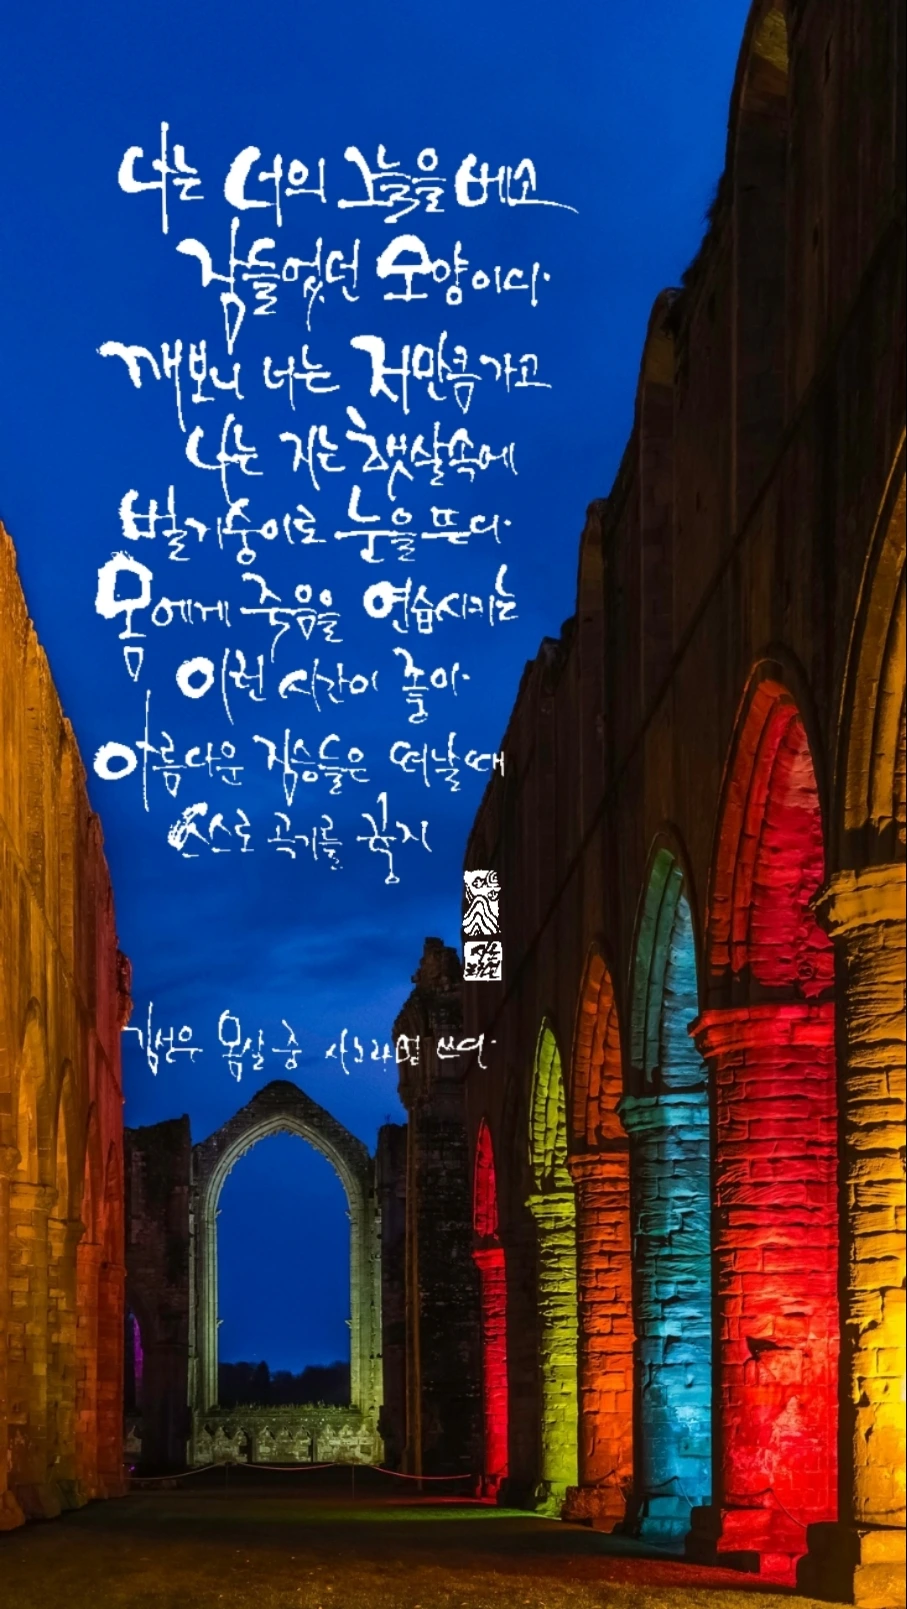 나는 너의 그늘을 베고
잠들었던 모양이다.
깨보니 너는 저만큼 가고
나는 지는 햇살속에
벌거숭이로 눈을 뜬다.
몸에게 죽음을 연습시키는
이런 시간이 좋아.
아름다운 짐승들은 떠날 때
스스로 곡기를 끊지
김선우 몸살 중 사노라면 쓰다.